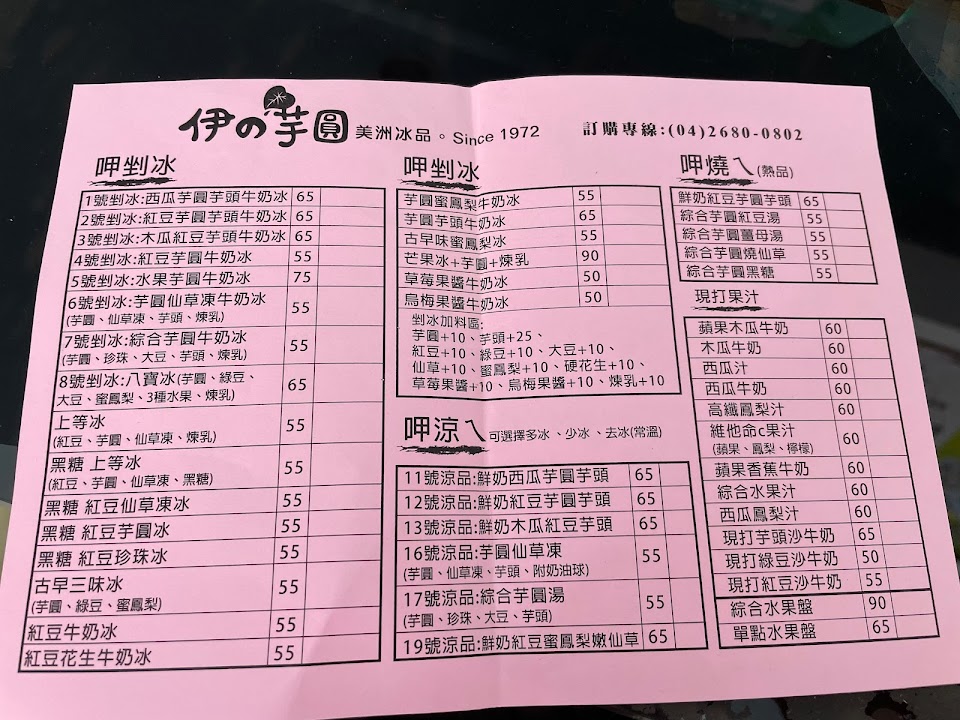 伊の芋圓 美洲冰品。Since 1972 訂購專線:(04)2680-0802
呷剉冰
1號剉冰:西瓜芋圓芋頭牛奶冰 65
2號剉冰:紅豆芋圓芋頭牛奶冰 65
3號剉冰:木瓜紅豆芋頭牛奶冰 65
4號剉冰:紅豆芋圓牛奶冰 55
5號剉冰:水果芋圓牛奶冰 75
6號剉冰:芋圓仙草凍牛奶冰 55
(芋圓、仙草凍、芋頭、煉乳)
7號剉冰:綜合芋圓牛奶冰 55
(芋圓、珍珠、大豆、芋頭、煉乳)
8號剉冰:八寶冰(芋圓、綠豆、 65
大豆、蜜鳳梨、3種水果、煉乳)
上等冰 55
(紅豆、芋圓、仙草凍、煉乳)
黑糖 上等冰 55
(紅豆、芋圓、仙草凍、黑糖)
黑糖 紅豆仙草凍冰 55
黑糖 紅豆芋圓冰 55
黑糖 紅豆珍珠冰 55
古早三味冰 55
(芋圓、綠豆、蜜鳳梨)
紅豆牛奶冰 55
紅豆花生牛奶冰 55
呷剉冰
芋圓蜜鳳梨牛奶冰 55
芋圓芋頭牛奶冰 65
古早味蜜鳳梨冰 55
芒果冰+芋圓+煉乳 90
草莓果醬牛奶冰 50
烏梅果醬牛奶冰 50
剉冰加料區:
芋圓+10、芋頭+25、
紅豆+10、綠豆+10、大豆+10、
仙草+10、蜜鳳梨+10、硬花生+10、
草莓果醬+10、烏梅果醬+10、煉乳+10
呷涼ㄟ 可選擇多冰、少冰、去冰(常溫)
11號涼品:鮮奶西瓜芋圓芋頭 65
12號涼品:鮮奶紅豆芋圓芋頭 65
13號涼品:鮮奶木瓜紅豆芋頭 65
16號涼品:芋圓仙草凍 55
(芋圓、仙草凍、芋頭、附奶油球)
17號涼品:綜合芋圓湯 55
(芋圓、珍珠、大豆、芋頭)
19號涼品:鮮奶紅豆蜜鳳梨嫩仙草 65
呷燒ㄟ(熱品)
鮮奶紅豆芋圓芋頭 65
綜合芋圓紅豆湯 55
綜合芋圓薑母湯 55
綜合芋圓燒仙草 55
綜合芋圓黑糖 55
現打果汁
蘋果木瓜牛奶 60
木瓜牛奶 60
西瓜汁 60
西瓜牛奶 60
高纖鳳梨汁 60
維他命c果汁 60
(蘋果、鳳梨、檸檬)
蘋果香蕉牛奶 60
綜合水果汁 60
西瓜鳳梨汁 60
現打芋頭沙牛奶 65
現打綠豆沙牛奶 50
現打紅豆沙牛奶 55
綜合水果盤 90
單點水果盤 65